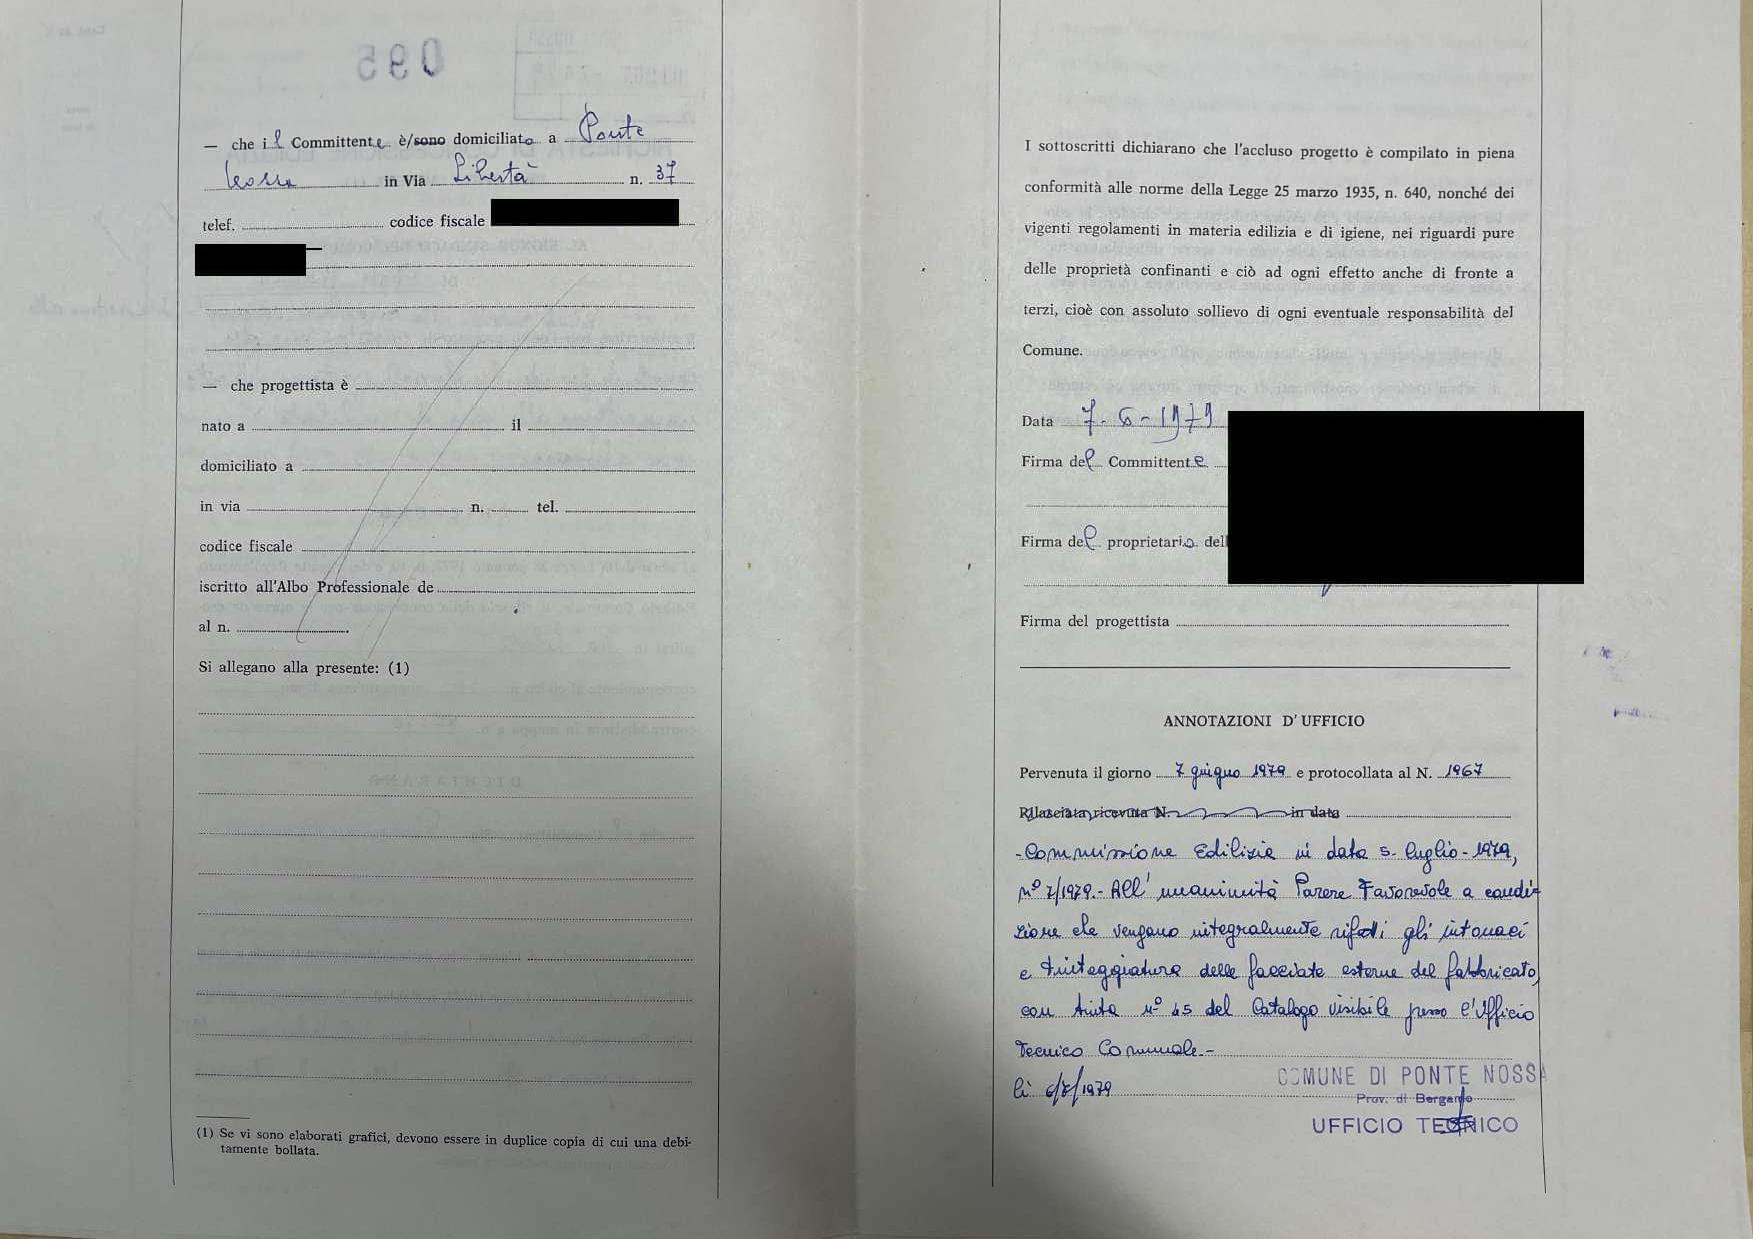 095
— che il Committente è/sono domiciliato a Ponte
Nossa in Via Libertà n. 37
telef. codice fiscale
— che progettista è
nato a il
domiciliato a
in via n. tel.
codice fiscale
iscritto all'Albo Professionale de
al n.
Si allegano alla presente: (1)
(1) Se vi sono elaborati grafici, devono essere in duplice copia di cui una debi-
tamente bollata.
I sottoscritti dichiarano che l'accluso progetto è compilato in piena
conformità alle norme della Legge 25 marzo 1935, n. 640, nonché dei
vigenti regolamenti in materia edilizia e di igiene, nei riguardi pure
delle proprietà confinanti e ciò ad ogni effetto anche di fronte a
terzi, cioè con assoluto sollievo di ogni eventuale responsabilità del
Comune.
Data 7-6-1979
Firma del Committente
Firma del proprietario dell
Firma del progettista
ANNOTAZIONI D'UFFICIO
Pervenuta il giorno 7 giugno 1979 e protocollata al N. 1967
Rilasciata ricevuta N. in data
- Commissione Edilizia in data 5 - luglio - 1979,
n° 7/1979.- All'unanimità Parere Favorevole a condi-
zione che vengano integralmente rifatti gli intonaci
e tinteggiatura delle facciate esterne del fabbricato,
con tinta n° 45 del Catalogo visibile presso l'Ufficio
Tecnico Comunale -
lì 6/7/1979
COMUNE DI PONTE NOSSA
Prov. di Bergamo
UFFICIO TECNICO